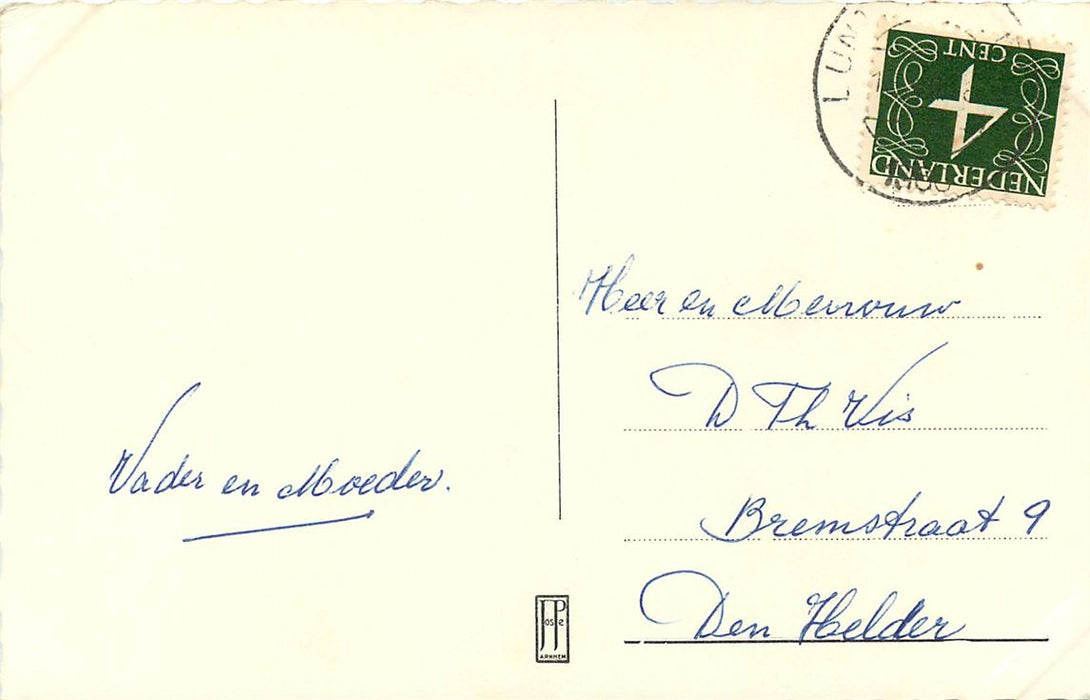 Vader en Moeder.
NEDERLAND
4
CENT
Heer en Mevrouw
D Th Vis
Bremstraat 9
Den Helder
JosPe
ARNHEM